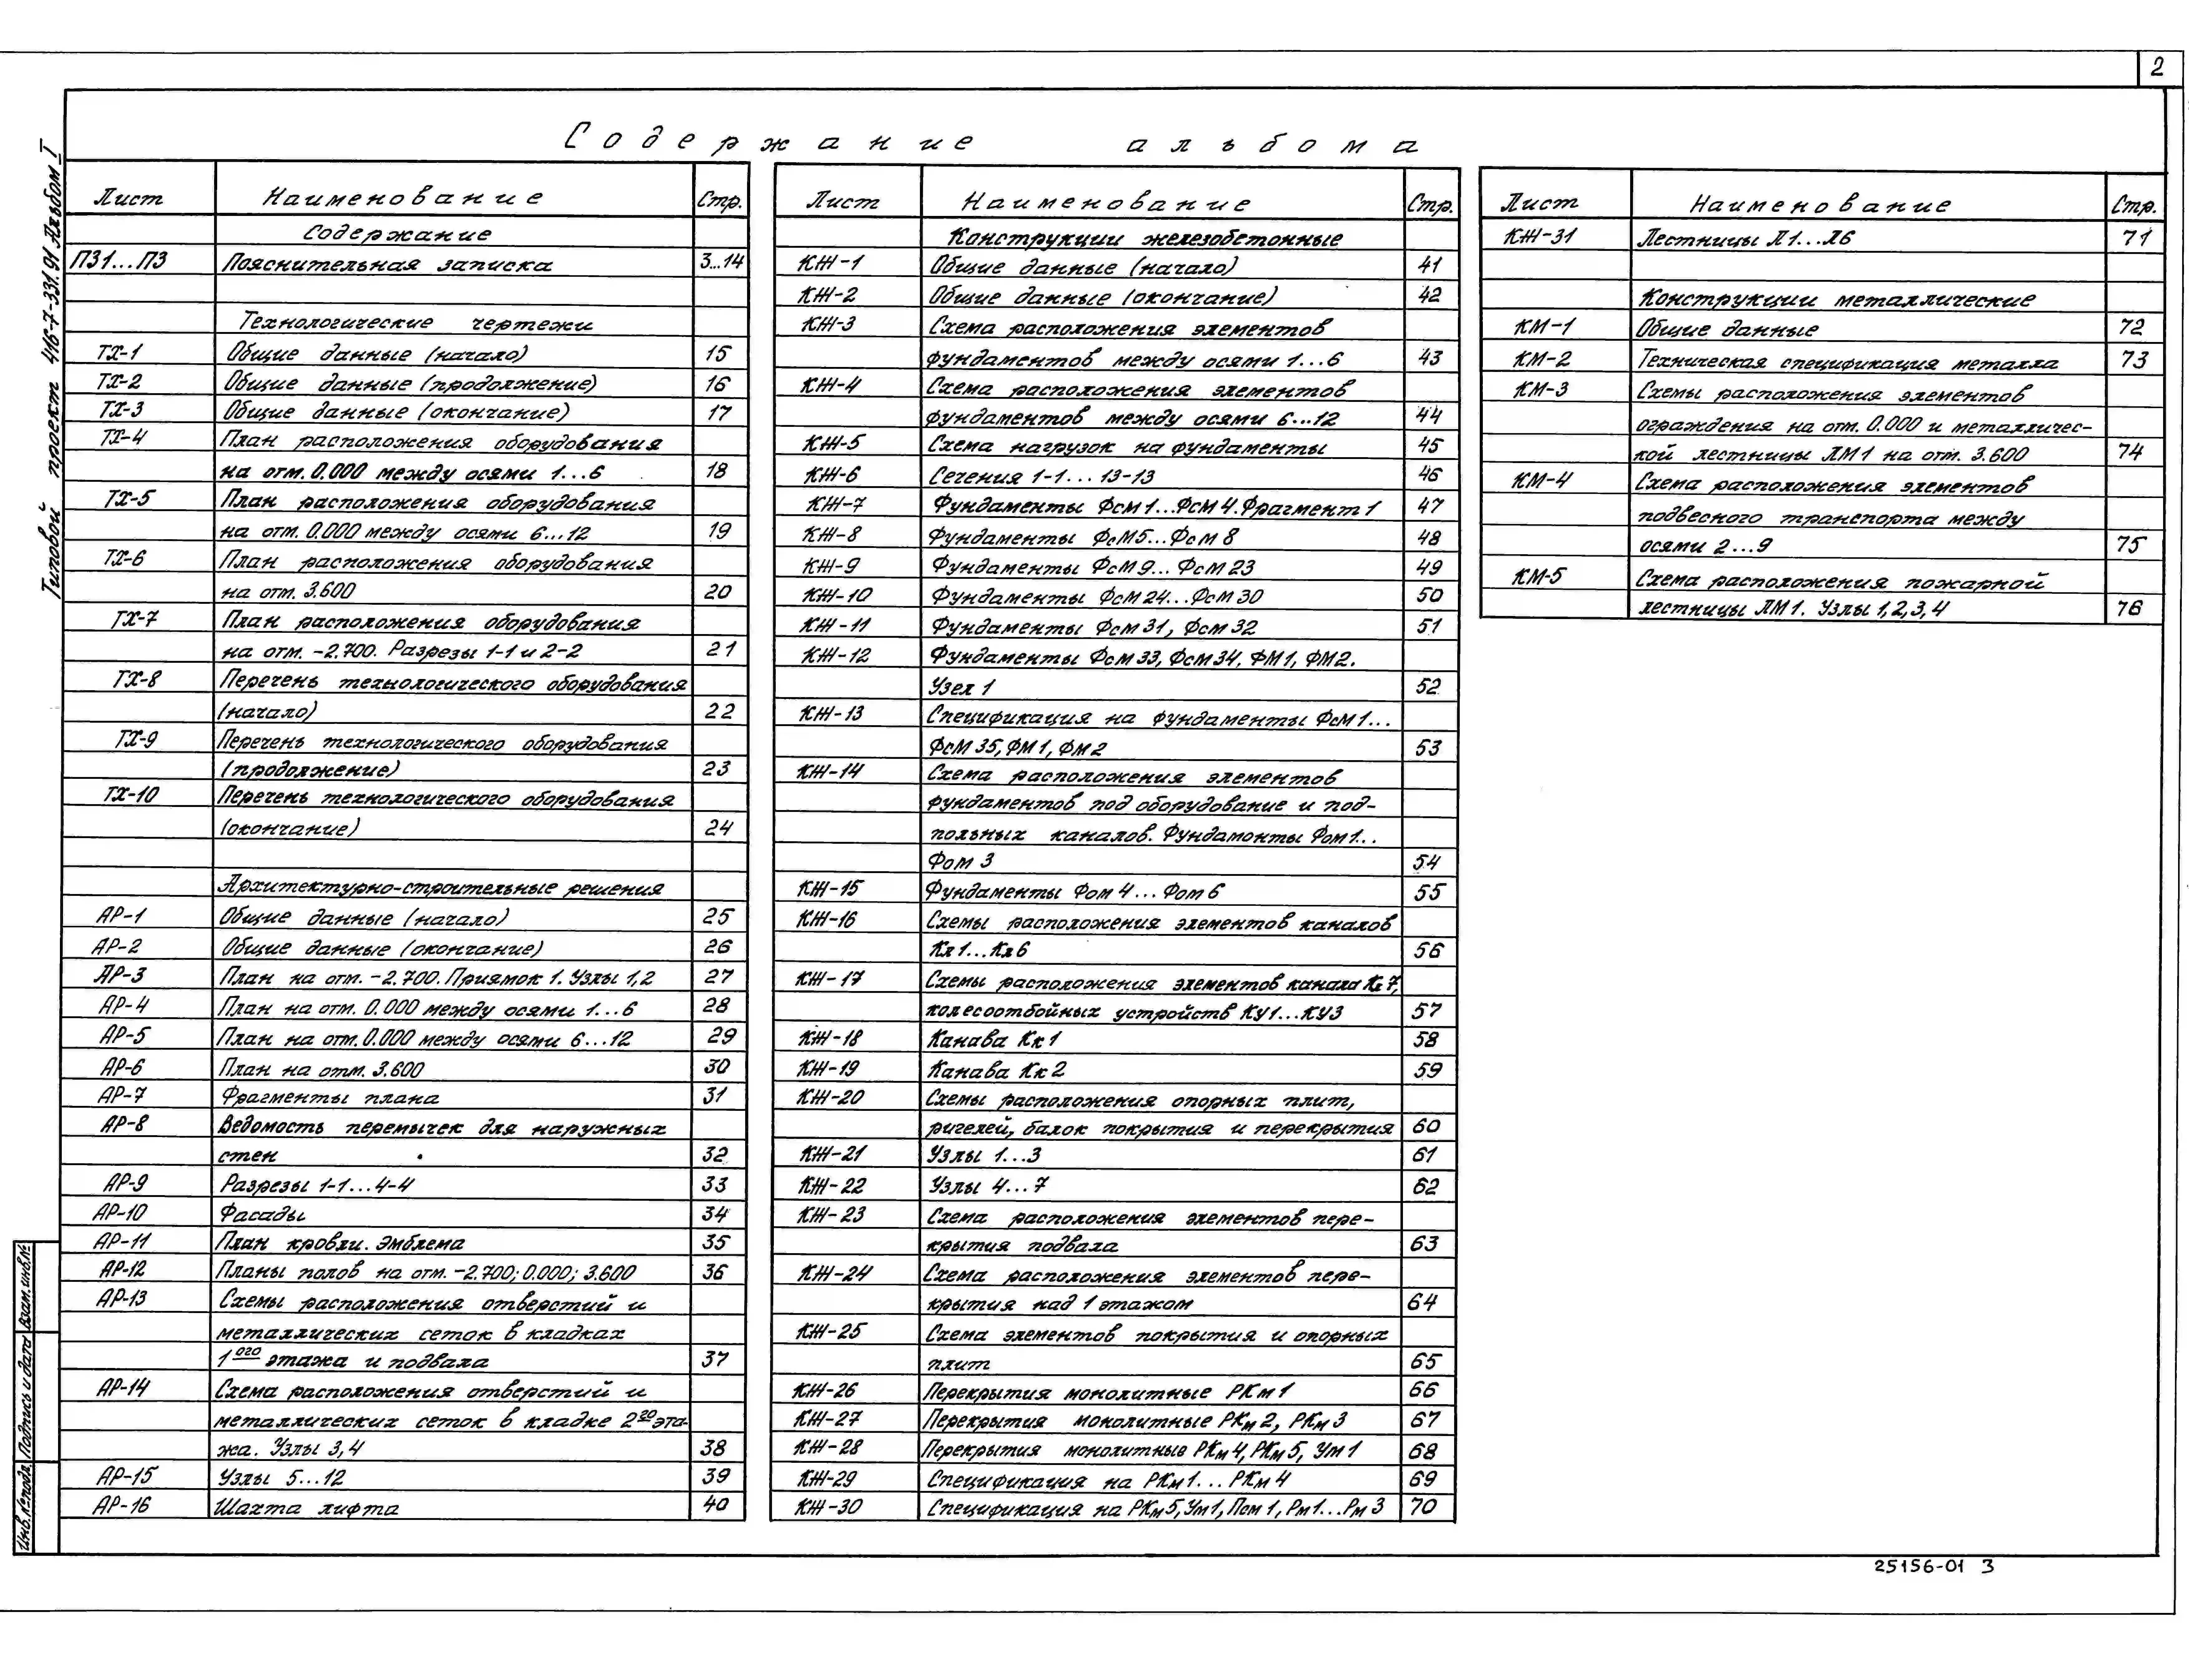 2
Содержание альбома
Типовой проект 416-7-331.91 Альбом I
Лист Наименование Стр.
Содержание
ПЗ1...ПЗ Пояснительная записка 3...14
Технологические чертежи
ТХ-1 Общие данные (начало) 15
ТХ-2 Общие данные (продолжение) 16
ТХ-3 Общие данные (окончание) 17
ТХ-4 План расположения оборудования
на отм. 0.000 между осями 1...6 18
ТХ-5 План расположения оборудования
на отм. 0.000 между осями 6...12 19
ТХ-6 План расположения оборудования
на отм. 3.600 20
ТХ-7 План расположения оборудования
на отм. -2.700. Разрезы 1-1 и 2-2 21
ТХ-8 Перечень технологического оборудования
(начало) 22
ТХ-9 Перечень технологического оборудования
(продолжение) 23
ТХ-10 Перечень технологического оборудования
(окончание) 24
Архитектурно-строительные решения
АР-1 Общие данные (начало) 25
АР-2 Общие данные (окончание) 26
АР-3 План на отм. -2.700. Приямок 1. Узлы 1,2 27
АР-4 План на отм. 0.000 между осями 1...6 28
АР-5 План на отм. 0.000 между осями 6...12 29
АР-6 План на отм. 3.600 30
АР-7 Фрагменты плана 31
АР-8 Ведомость перемычек для наружных
стен 32
АР-9 Разрезы 1-1...4-4 33
АР-10 Фасады 34
АР-11 План кровли. Эмблема 35
АР-12 Планы полов на отм. -2.700; 0.000; 3.600 36
АР-13 Схемы расположения отверстий и
металлических сеток в кладках
1ого этажа и подвала 37
АР-14 Схема расположения отверстий и
металлических сеток в кладке 2го эта-
жа. Узлы 3,4 38
АР-15 Узлы 5...12 39
АР-16 Шахта лифта 40
Лист Наименование Стр.
Конструкции железобетонные
КЖ-1 Общие данные (начало) 41
КЖ-2 Общие данные (окончание) 42
КЖ-3 Схема расположения элементов
фундаментов между осями 1...6 43
КЖ-4 Схема расположения элементов
фундаментов между осями 6...12 44
КЖ-5 Схема нагрузок на фундаменты 45
КЖ-6 Сечения 1-1... 13-13 46
КЖ-7 Фундаменты Фсм1...Фсм4. Фрагмент 1 47
КЖ-8 Фундаменты Фсм5...Фсм8 48
КЖ-9 Фундаменты Фсм9... Фсм23 49
КЖ-10 Фундаменты Фсм24...Фсм30 50
КЖ-11 Фундаменты Фсм31, Фсм32 51
КЖ-12 Фундаменты Фсм33, Фсм34. ФМ1, ФМ2.
Узел 1 52
КЖ-13 Спецификация на фундаменты Фсм1...
Фсм35, ФМ1, ФМ2 53
КЖ-14 Схема расположения элементов
фундаментов под оборудование и под-
польных каналов. Фундамонты Фом1...
Фом3 54
КЖ-15 Фундаменты Фом4...Фом6 55
КЖ-16 Схемы расположения элементов каналов
Кл1...Кл6 56
КЖ-17 Схемы расположения элементов канала Кл7,
колесоотбойных устройств КУ1...КУ3 57
КЖ-18 Канава Кк1 58
КЖ-19 Канава Кк2 59
КЖ-20 Схемы расположения опорных плит,
ригелей, балок покрытия и перекрытия 60
КЖ-21 Узлы 1...3 61
КЖ-22 Узлы 4...7 62
КЖ-23 Схема расположения элементов пере-
крытия подвала 63
КЖ-24 Схема расположения элементов пере-
крытия над 1 этажом 64
КЖ-25 Схема элементов покрытия и опорных
плит 65
КЖ-26 Перекрытия монолитные РКм1 66
КЖ-27 Перекрытия монолитные РКм2, РКм3 67
КЖ-28 Перекрытия монолитные РКм4, РКм5, Ум1 68
КЖ-29 Спецификация на РКм1... РКм4 69
КЖ-30 Спецификация на РКм5, Ум1, Псм1, Рм1...Рм3 70
Лист Наименование Стр.
КЖ-31 Лестницы Л1...Л6 71
Конструкции металлические
КМ-1 Общие данные 72
КМ-2 Техническая спецификация металла 73
КМ-3 Схемы расположения элементов
ограждения на отм. 0.000 и металличес-
кой лестницы ЛМ1 на отм. 3.600 74
КМ-4 Схема расположения элементов
подвесного транспорта между
осями 2...9 75
КМ-5 Схема расположения пожарной
лестницы ЛМ1. Узлы 1,2,3,4 76
Инв.№подл. Подпись и дата Взам.инв.№
25156-01 3